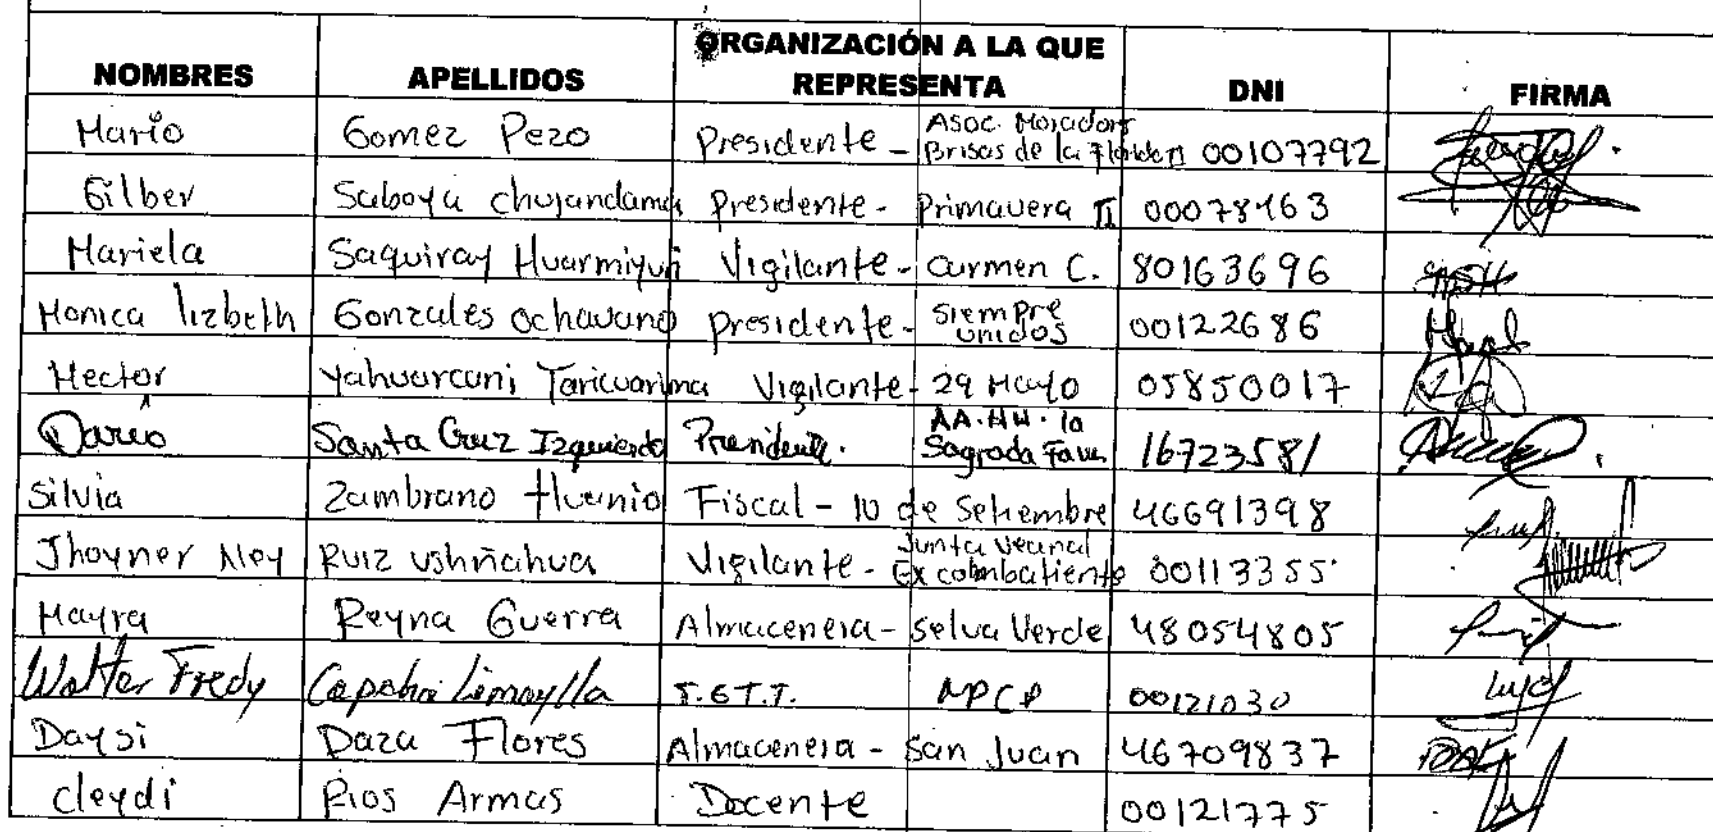 NOMBRES APELLIDOS ORGANIZACIÓN A LA QUE REPRESENTA DNI FIRMA
Mario Gomez Pezo Presidente - Asoc. Moradors Brisas de la 00107792
Gilber Saboya chujandama Presidente - Primavera II 00078163
Mariela Saquiray Huarmiyuri Vigilante - Carmen C. 80163696
Monica lizbeth Gonzales Ochavano presidente - siempre unidos 00122686
Hector Yahuarcani Taricuarima Vigilante - 29 Mayo 05850017
Dario Santa Cruz Izquierdo Presidente. AA.HH. la Sagrada Fam. 16723581
Silvia Zambrano Huanio Fiscal - 10 de Setiembre 46691398
Jhoyner Ney Ruiz ushñahua Vigilante - Junta Vecinal Ex combatiente 00113355
Mayra Reyna Guerra Almacenera - Selva Verde 48054805
Walter Fredy Limaylla MPCP 00121030
Daysi Daza Flores Almacenera - San Juan 46709837
cleydi Rios Armas Docente 00121775